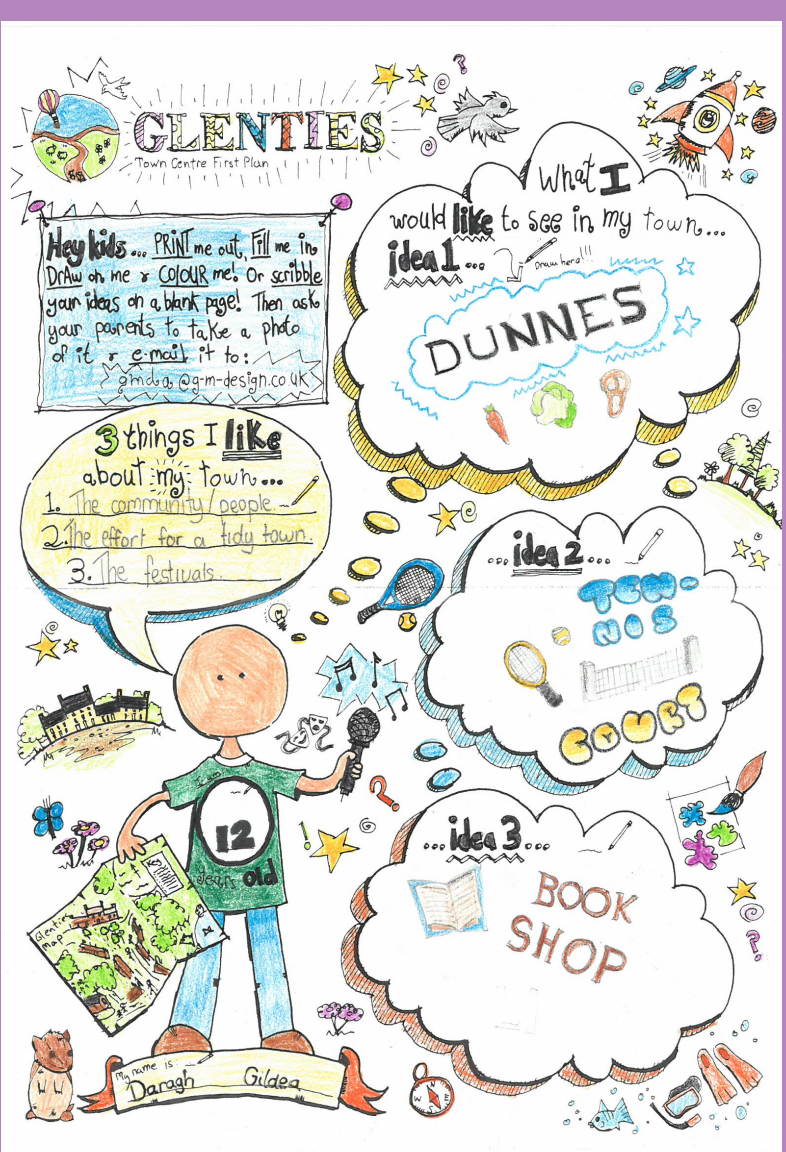 GLENTIES
Town Centre First Plan
Hey kids... PRINT me out, Fill me in
DrAw on me & COlOUR me! Or scribble
your ideas on a blank page! Then ask
your parents to take a photo
of it & e-mail it to:
gmda@g-m-design.co.uk
3 things I like
about my town...
1. The community/people.
2. The effort for a tidy town.
3. The festivals.
I am
12
years old
Glenties
Map
My name is:
Daragh Gildea
What I
would like to see in my town...
idea 1...
Draw here!!!
DUNNES
...idea 2...
TEN-
NIS
COURT
...idea 3...
BOOK
SHOP
N
W E
S